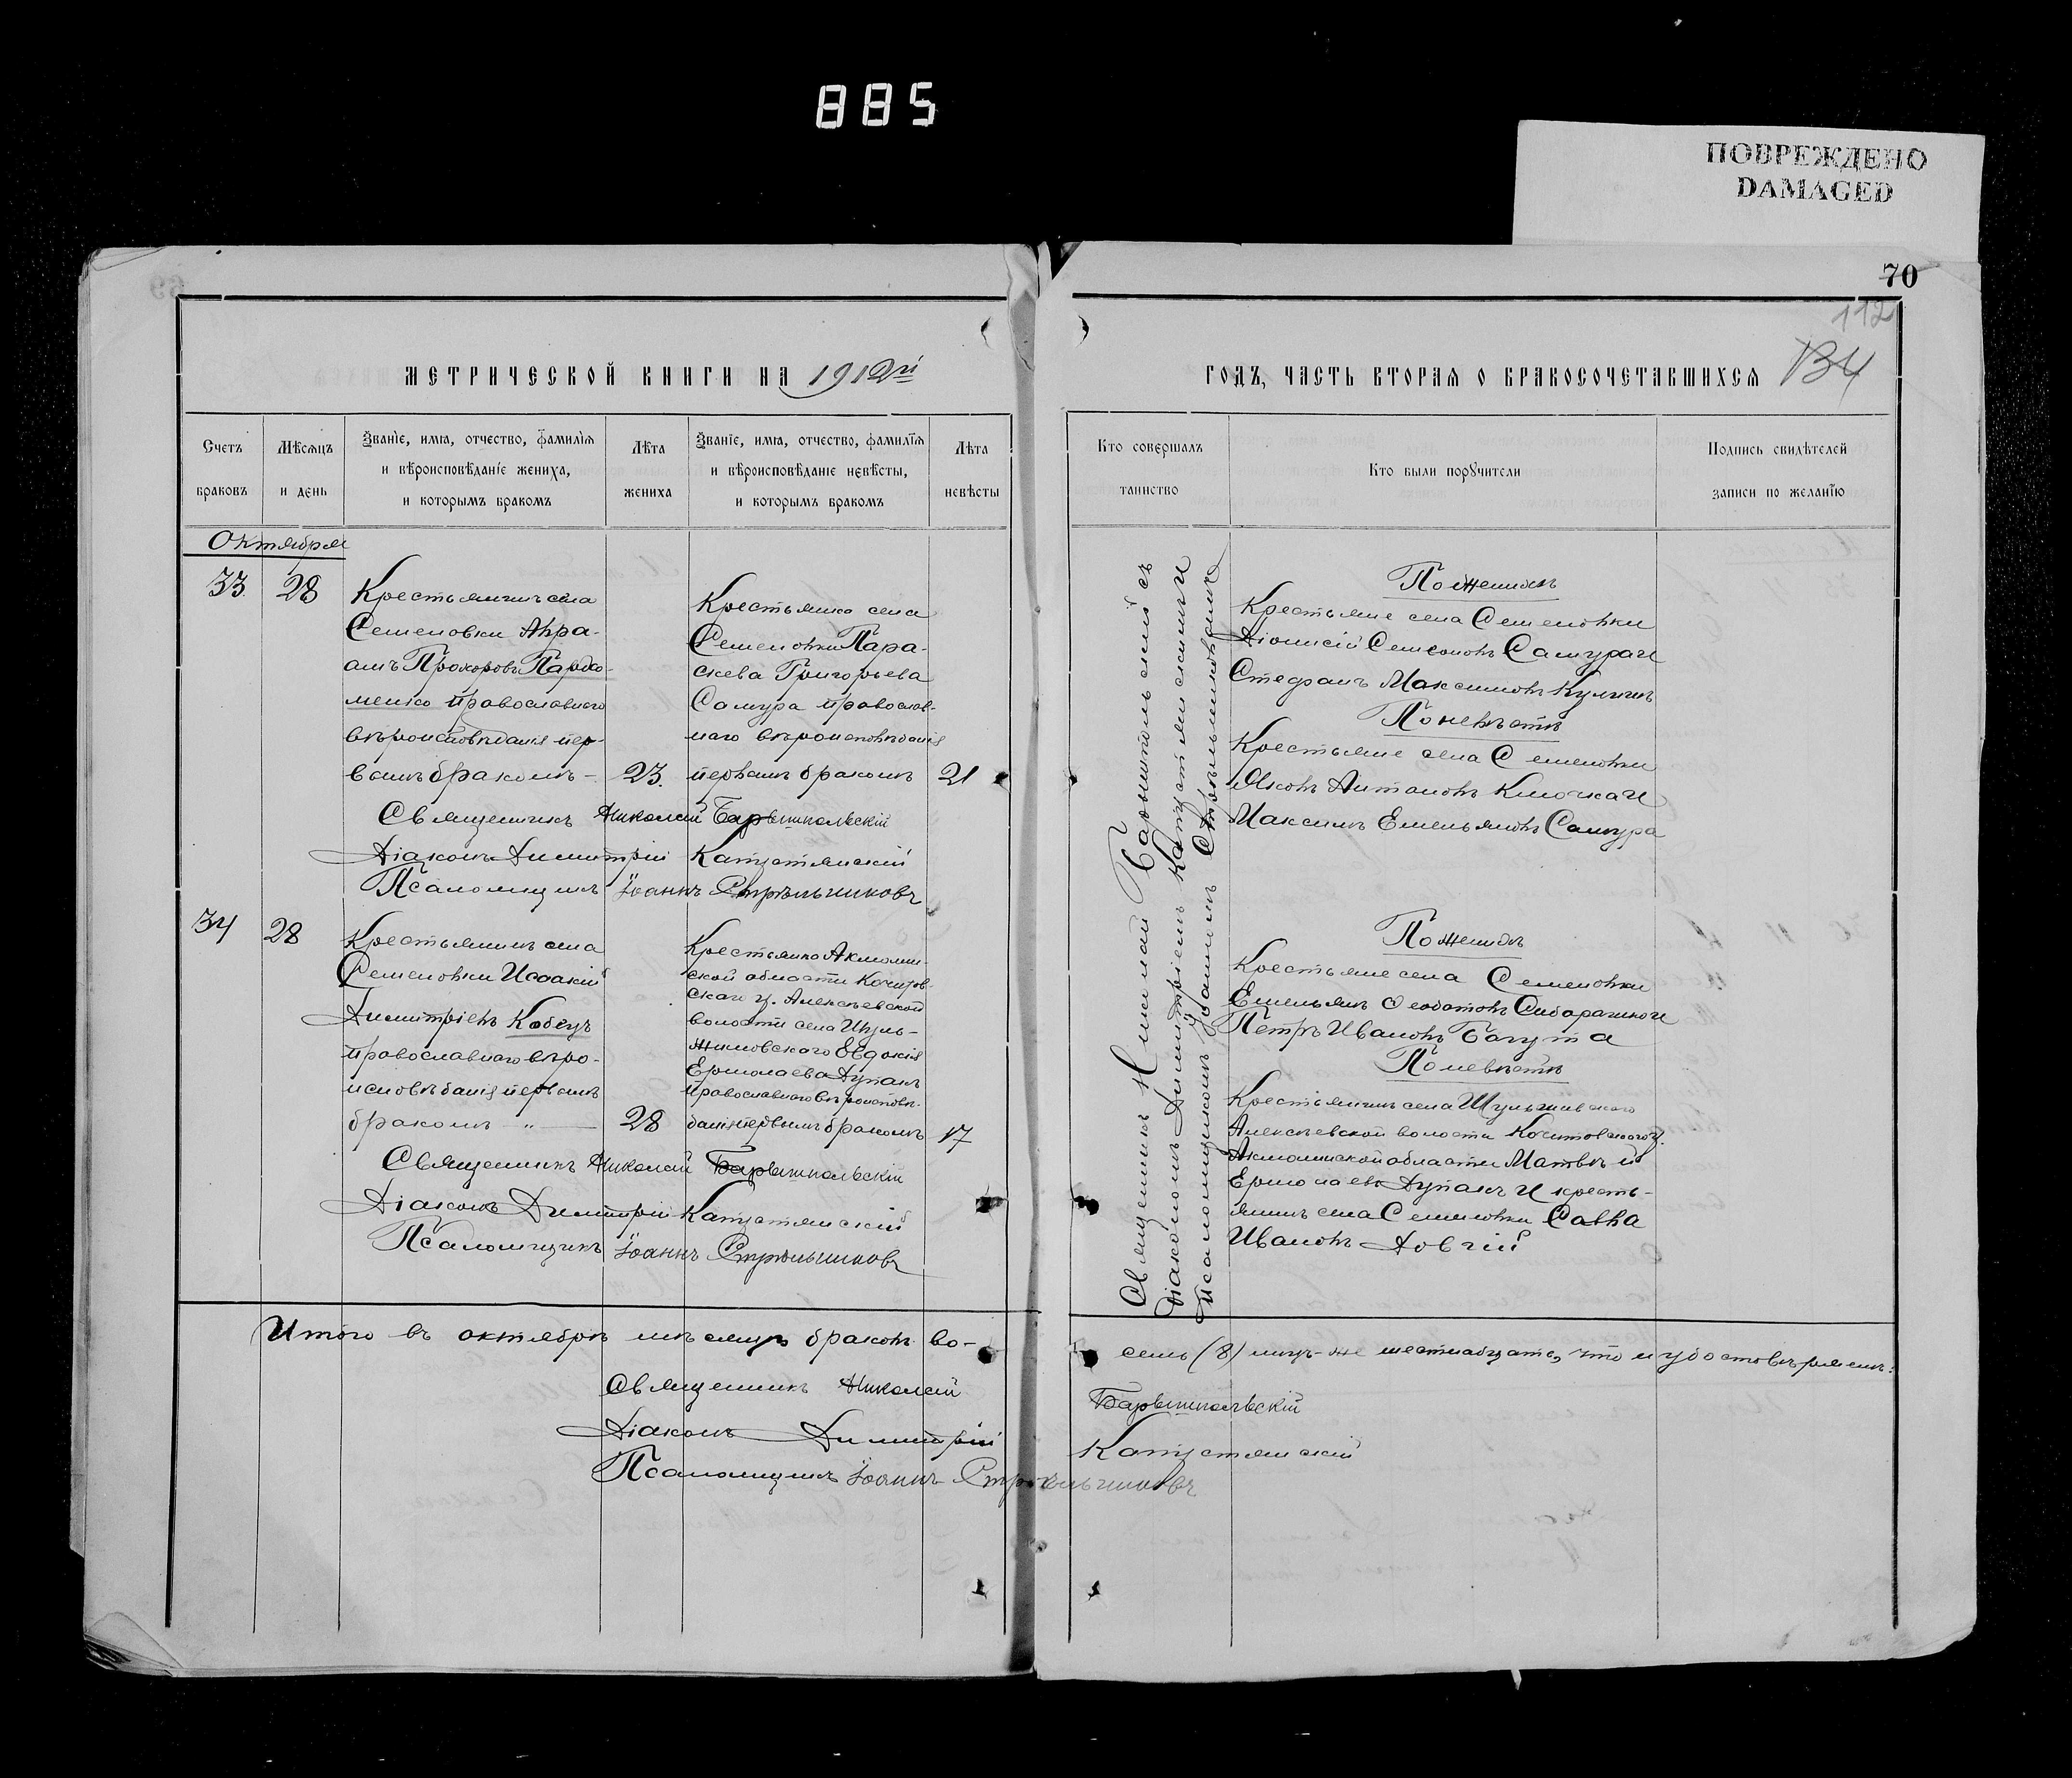 885
ПОВРЕЖДЕНО
DAMAGED
70
112
МЕТРИЧЕСКОЙ КНИГИ НА 1912й
Счетъ браковъ
Мѣсяцъ и день
Званіе, имя, отчество, фамилія и вѣроисповѣданіе жениха, и которымъ бракомъ
Лѣта жениха
Званіе, имя, отчество, фамилія и вѣроисповѣданіе невѣсты, и которымъ бракомъ
Лѣта невѣсты
Октября
33
28
Крестьянинъ села
Семеновки Авра-
амъ Прохоровъ Пархо-
менко православнаго
вѣроисповѣданія пер-
вымъ бракомъ -
23.
Крестьянка села
Семеновки Пара-
скева Григорьева
Самура православ-
наго вѣроисповѣданія
первымъ бракомъ
21
Священникъ Николай Барышпольскій
Діаконъ Димитрій Капустянскій
Псаломщикъ Іоаннъ Стрѣльниковъ
34
28
Крестьянинъ села
Семеновки Исаакій
Димитріевъ Кобецъ
православнаго вѣро-
исповѣданія первымъ
бракомъ - „ -
28
Крестьянка Акмолин-
ской области Кочетов-
скаго у. Алексѣевской
волости села Шуль-
жиновскаго Евдокія
Ермолаева Дупакъ
православнаго вѣроисповѣ-
данія первымъ бракомъ
17
Священникъ Николай Барышпольскій
Діаконъ Димитрій Капустянскій
Псаломщикъ Іоаннъ Стрѣльниковъ
Итого въ октябрѣ мѣсяцѣ браковъ во-
Священникъ Николай
Діаконъ Димитрій
Псаломщикъ Іоаннъ Стрѣльниковъ
ГОДЪ, ЧАСТЬ ВТОРАЯ О БРАКОСОЧЕТАВШИХСЯ
Кто совершалъ таинство
Кто были поручители
Подпись свидѣтелей записи по желанію
Священникъ Николай Барышпольскій съ
Діакономъ Димитріемъ Капустянскимъ и
Псаломщикомъ Іоанномъ Стрѣльниковымъ
По женихѣ
Крестьяне села Семеновки
Діонисій Семеоновъ Самура и
Стефанъ Максимовъ Куличъ
По невѣстѣ
Крестьяне села Семеновки
Яковъ Антоновъ Клочка и
Максимъ Емельяновъ Самура
По женихѣ
Крестьяне села Семеновки
Емельянъ Феодотовъ и
Петръ Ивановъ Багута
По невѣстѣ
Крестьянинъ села
Алексѣевской волости Кочетовскаго у.
Акмолинской области Матвѣй
Ермолаевъ Дупакъ и кресть-
янинъ села Семеновки Савва
Ивановъ Довгій
семь (8) лицъ-же шестнадцать, что и удостовѣряемъ:
Барышпольскій
Капустянскій